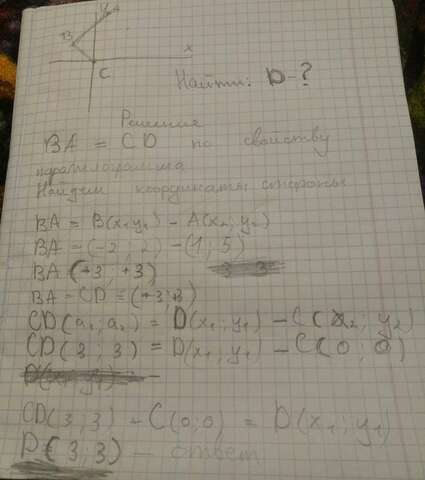 y A
B
x
C
Найти: D - ?
Решение
BA = CD по свойству
параллелограмма
Найдем координаты стороны
BA = B(x₁ y₁) - A(x₂; y₂)
BA = (-2; 2) - (1; 5)
BA (+3; +3) 3 3
BA = CD = (+3; 3)
CD(a₁; a₂) = D(x₁; y₁) - C(x₂; y₂)
CD(3; 3) = D(x₁; y₁) - C(0; 0)
CD(3; 3) - C(0; 0) = D(x₁; y₁)
D(3; 3) - ответ